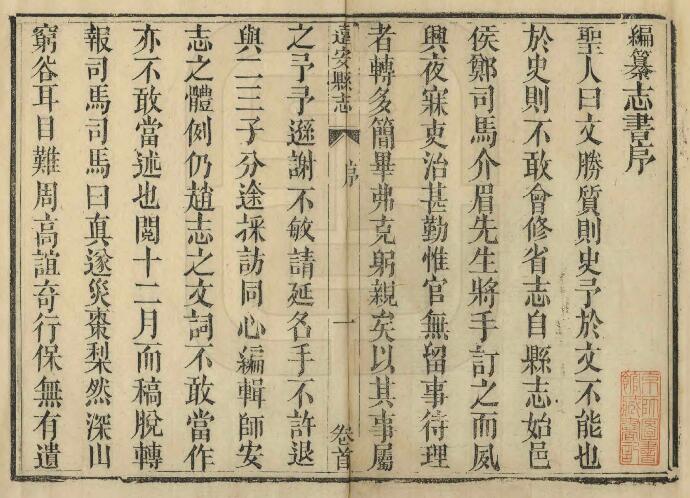 編纂志書序
聖人曰文勝質則史予於文不能也
於史則不敢會修省志自縣志始邑
侯鄭司馬介眉先生將手訂之而夙
興夜寐吏治甚勤惟官無留事待理
者轉多簡畢弗克躬親矣以其事屬
遠安縣志
序
一
卷首
之予予遜謝不敏請延名手不許退
與二三子分途採訪同心編輯師安
志之體例仍趙志之文詞不敢當作
亦不敢當述也閱十二月而稿脫轉
報司馬司馬曰真遂災棗梨然深山
窮谷耳目難周高誼奇行保無有遺